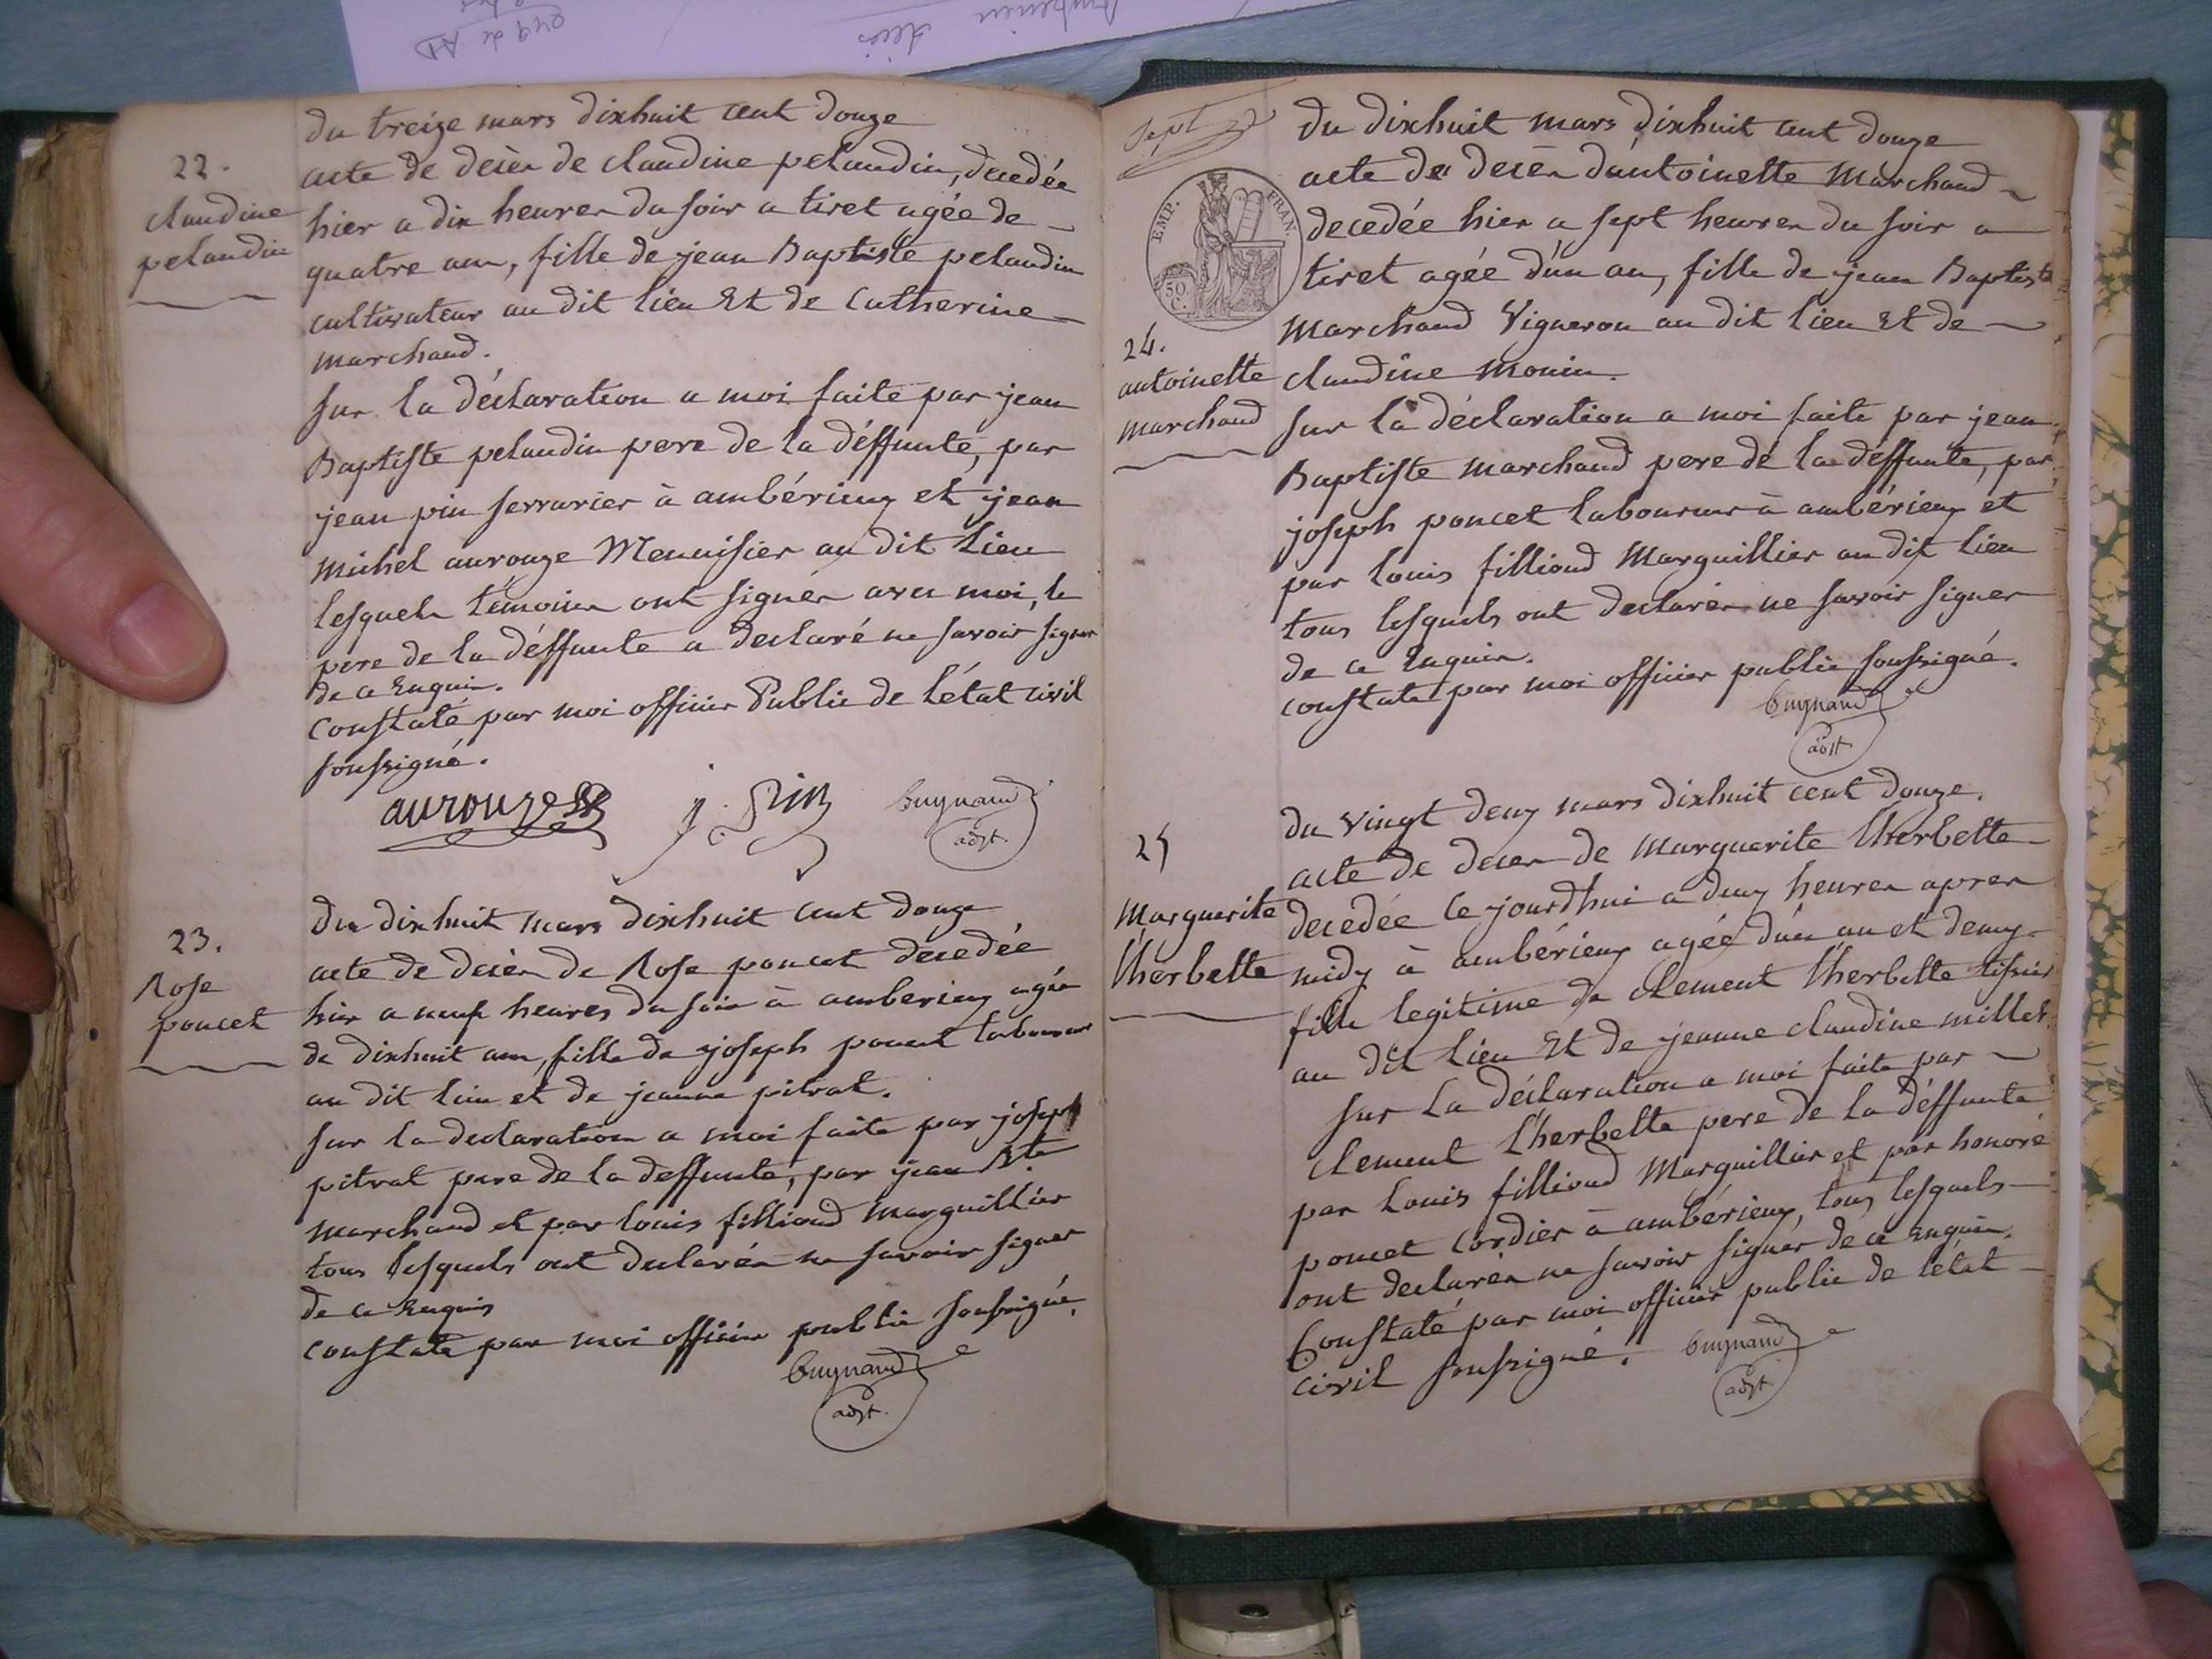 22.
claudine
pelaudin
du treize mars dixhuit cent douze
acte de decès de claudine pelaudin, decedée
hier a dix heures du soir a tiret agée de
quatre ans, fille de jean Baptiste pelaudin
cultivateur au dit lieu Et de Catherine
marchand.
sur la déclaration a moi faite par jean
Baptiste pelaudin pere de la déffunte, par
jean pin serrurier à ambérieux et jean
michel aurouze Menuisier au dit lieu
lesquels témoins ont signés avec moi, le
pere de la déffunte a declaré ne savoir signer
de ce Enquis.
Constaté par moi officier Public de l'état civil
soussigné.
aurouze j. Pin buynand
adjt.
23.
Rose
poncet
du dixhuit mars dixhuit cent douze
acte de decès de Rose poncet decedée
hier a neuf heures du soir à amberieux agée
de dixhuit ans, fille de joseph poncet laboureur
au dit lieu et de jeanne pitrat.
sur la declaration a moi faite par joseph
pitrat pere de la deffunte, par jean Bte
marchand et par louis filliond marguillier
tous lesquels ont declarés ne savoir signer
de ce Enquis
constaté par moi officier public soussigné.
buynand
adjt.
sept
EMP. FRAN.
50
C.
24.
antoinette
marchand
du dixhuit mars dixhuit cent douze
acte de decès d'antoinette marchand
decedée hier a sept heures du soir a
tiret agée d'un an, fille de jean Baptiste
marchand Vigneron au dit lieu Et de
claudine monin.
sur la déclaration a moi faite par jean
Baptiste marchand pere de la déffunte, par
joseph poncet laboureur à ambérieux et
par louis filliond Marguillier au dit lieu
tous lesquels ont declarés ne savoir signer
de ce Enquis.
constaté par moi officier public soussigné.
buynand
adjt
25
Marguerite
lherbette
du vingt deux mars dixhuit cent douze.
acte de deces de marguerite lherbette
decedée ce jourdhui a deux heures apres
midy à ambérieux agée d'un an et demy
fille legitime de clement lherbette tissier
au dit lieu Et de jeanne claudine millet.
sur La déclaration a moi faite par
clement l'herbette pere de la déffunte
par Louis filliond Marguillier et par honoré
poncet cordier à ambérieux, tous lesquels
ont declarés ne savoir signer de ce Enquis.
Constaté par moi officier public de l'état
civil soussigné. buynand
adjt.